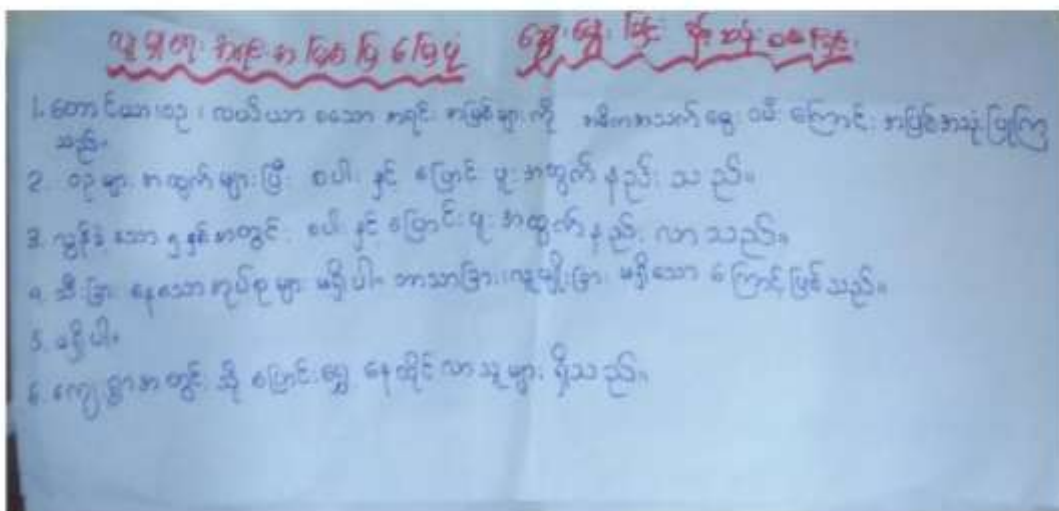 လူမှုရေး အရင်းအမြစ်ပြ မြေပုံ ဆွေးနွေးခြင်း နှင့် သုံးသပ်ခြင်း
1. တောင်ယာ၊ ဥ၊ လယ်ယာ စသော အရင်း အမြစ်များ ကို အဓိကအသက်မွေး ဝမ်း ကြောင်း အဖြစ်အသုံးပြုကြ
သည်။
2. ဥများ အထွက်များပြီး စပါး နှင့် ပြောင်း ဖူး အထွက် နည်း သည်။
3. လွန်ခဲ့သော ၅ နှစ်အတွင်း စပါး နှင့် ပြောင်းဖူး အထွက် နည်း လာသည်။
4. သီးခြား နေသော အုပ်စုများ မရှိပါ။ ဘာသာခြား၊ လူမျိုးခြား မရှိသော ကြောင့် ဖြစ်သည်။
5. မရှိပါ။
6. ကျေးရွာအတွင်း သို့ ပြောင်းရွှေ့ နေထိုင် လာသူများ ရှိသည်။